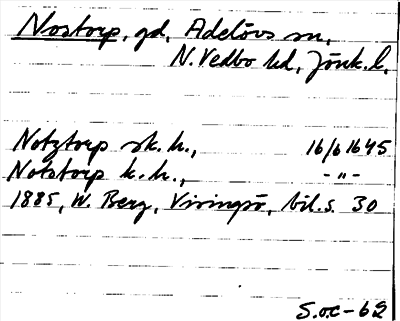 Nostorp, gd, Adelövs sn,
N. Vedbo hd, Jönk. l.
Notztorp sk. h., 16/6 1645
Notstorp k. h., -"-
1885, W. Berg, Visingsö, bil. s. 30
S.O.C-62